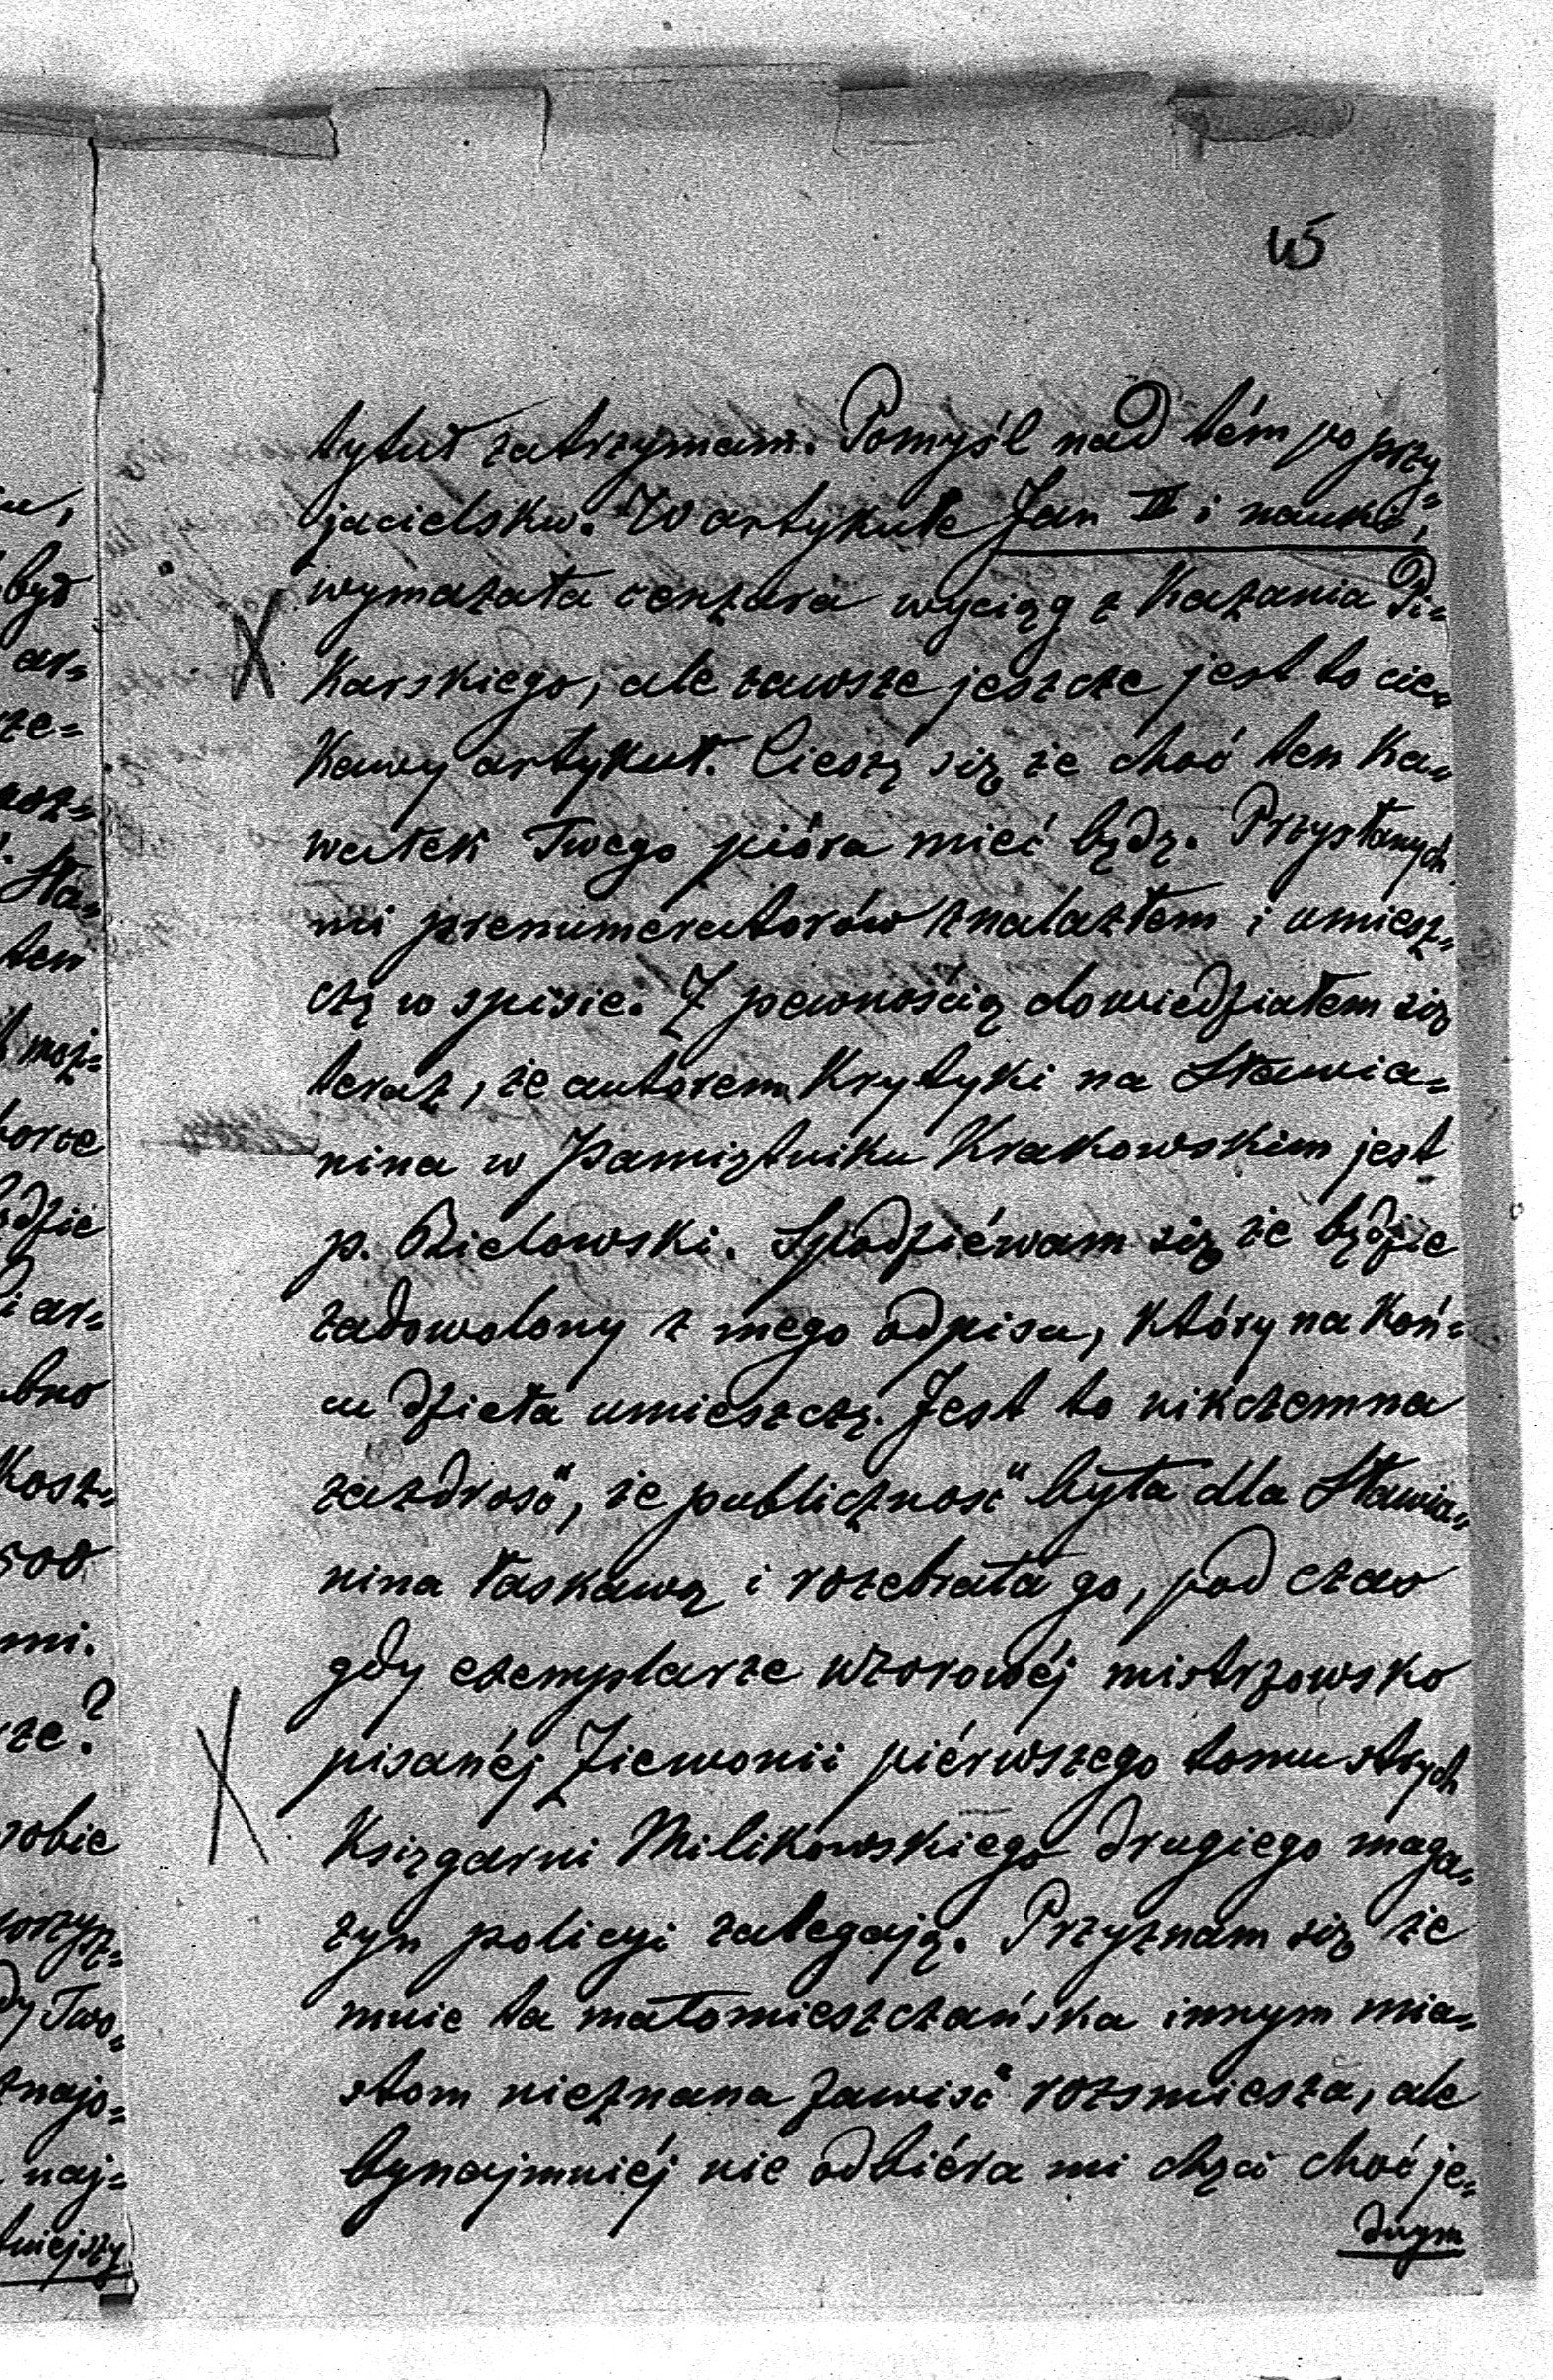 45
tytuł zatrzymam. Pomyśl nad tém po przy=
jacielsku. W artykule Jan III i nauki,
wymazała cenzura wyciąg z Kazania Pi=
karskiego, ale zawsze jeszcze jest to cie=
kawy artykuł. Cieszę się że choć ten ka=
wałek Twego pióra mieć będę. Przysłanych
mi prenumeratorów znalazłem i umiesz=
czę w spisie. Z pewnością dowiedziałem się
teraz, że autorem Krytyki na Sławia=
nina w Pamiętniku Krakowskim jest
p. Bielowski. Spodziéwam się że będzie
zadowolony z mego odpisu, który na koń=
cu dzieła umieszczę. Jest to nikczemna
zazdrość, że publiczność była dla Sławia=
nina łaskawą i rozebrała go, pod czas
gdy exemplarze wzorowéj mistrzowsko
pisanéj Ziewonii piérwszego tomu strych
Księgarni Milikowskiego drugiego maga=
zyn policyi zalegają. Przyznam się że
mnie ta małomieszczańska innym mia=
stom nieznana zawiść rozśmiesza, ale
bynajmniéj nie odbiéra mi chęci choć je=
dnym
był
ar=
ze=
Sła=
ten
moż=
dzie
i ar=
bno
Kosz=
500
mi.
robie
Two=
znajo=
naj=